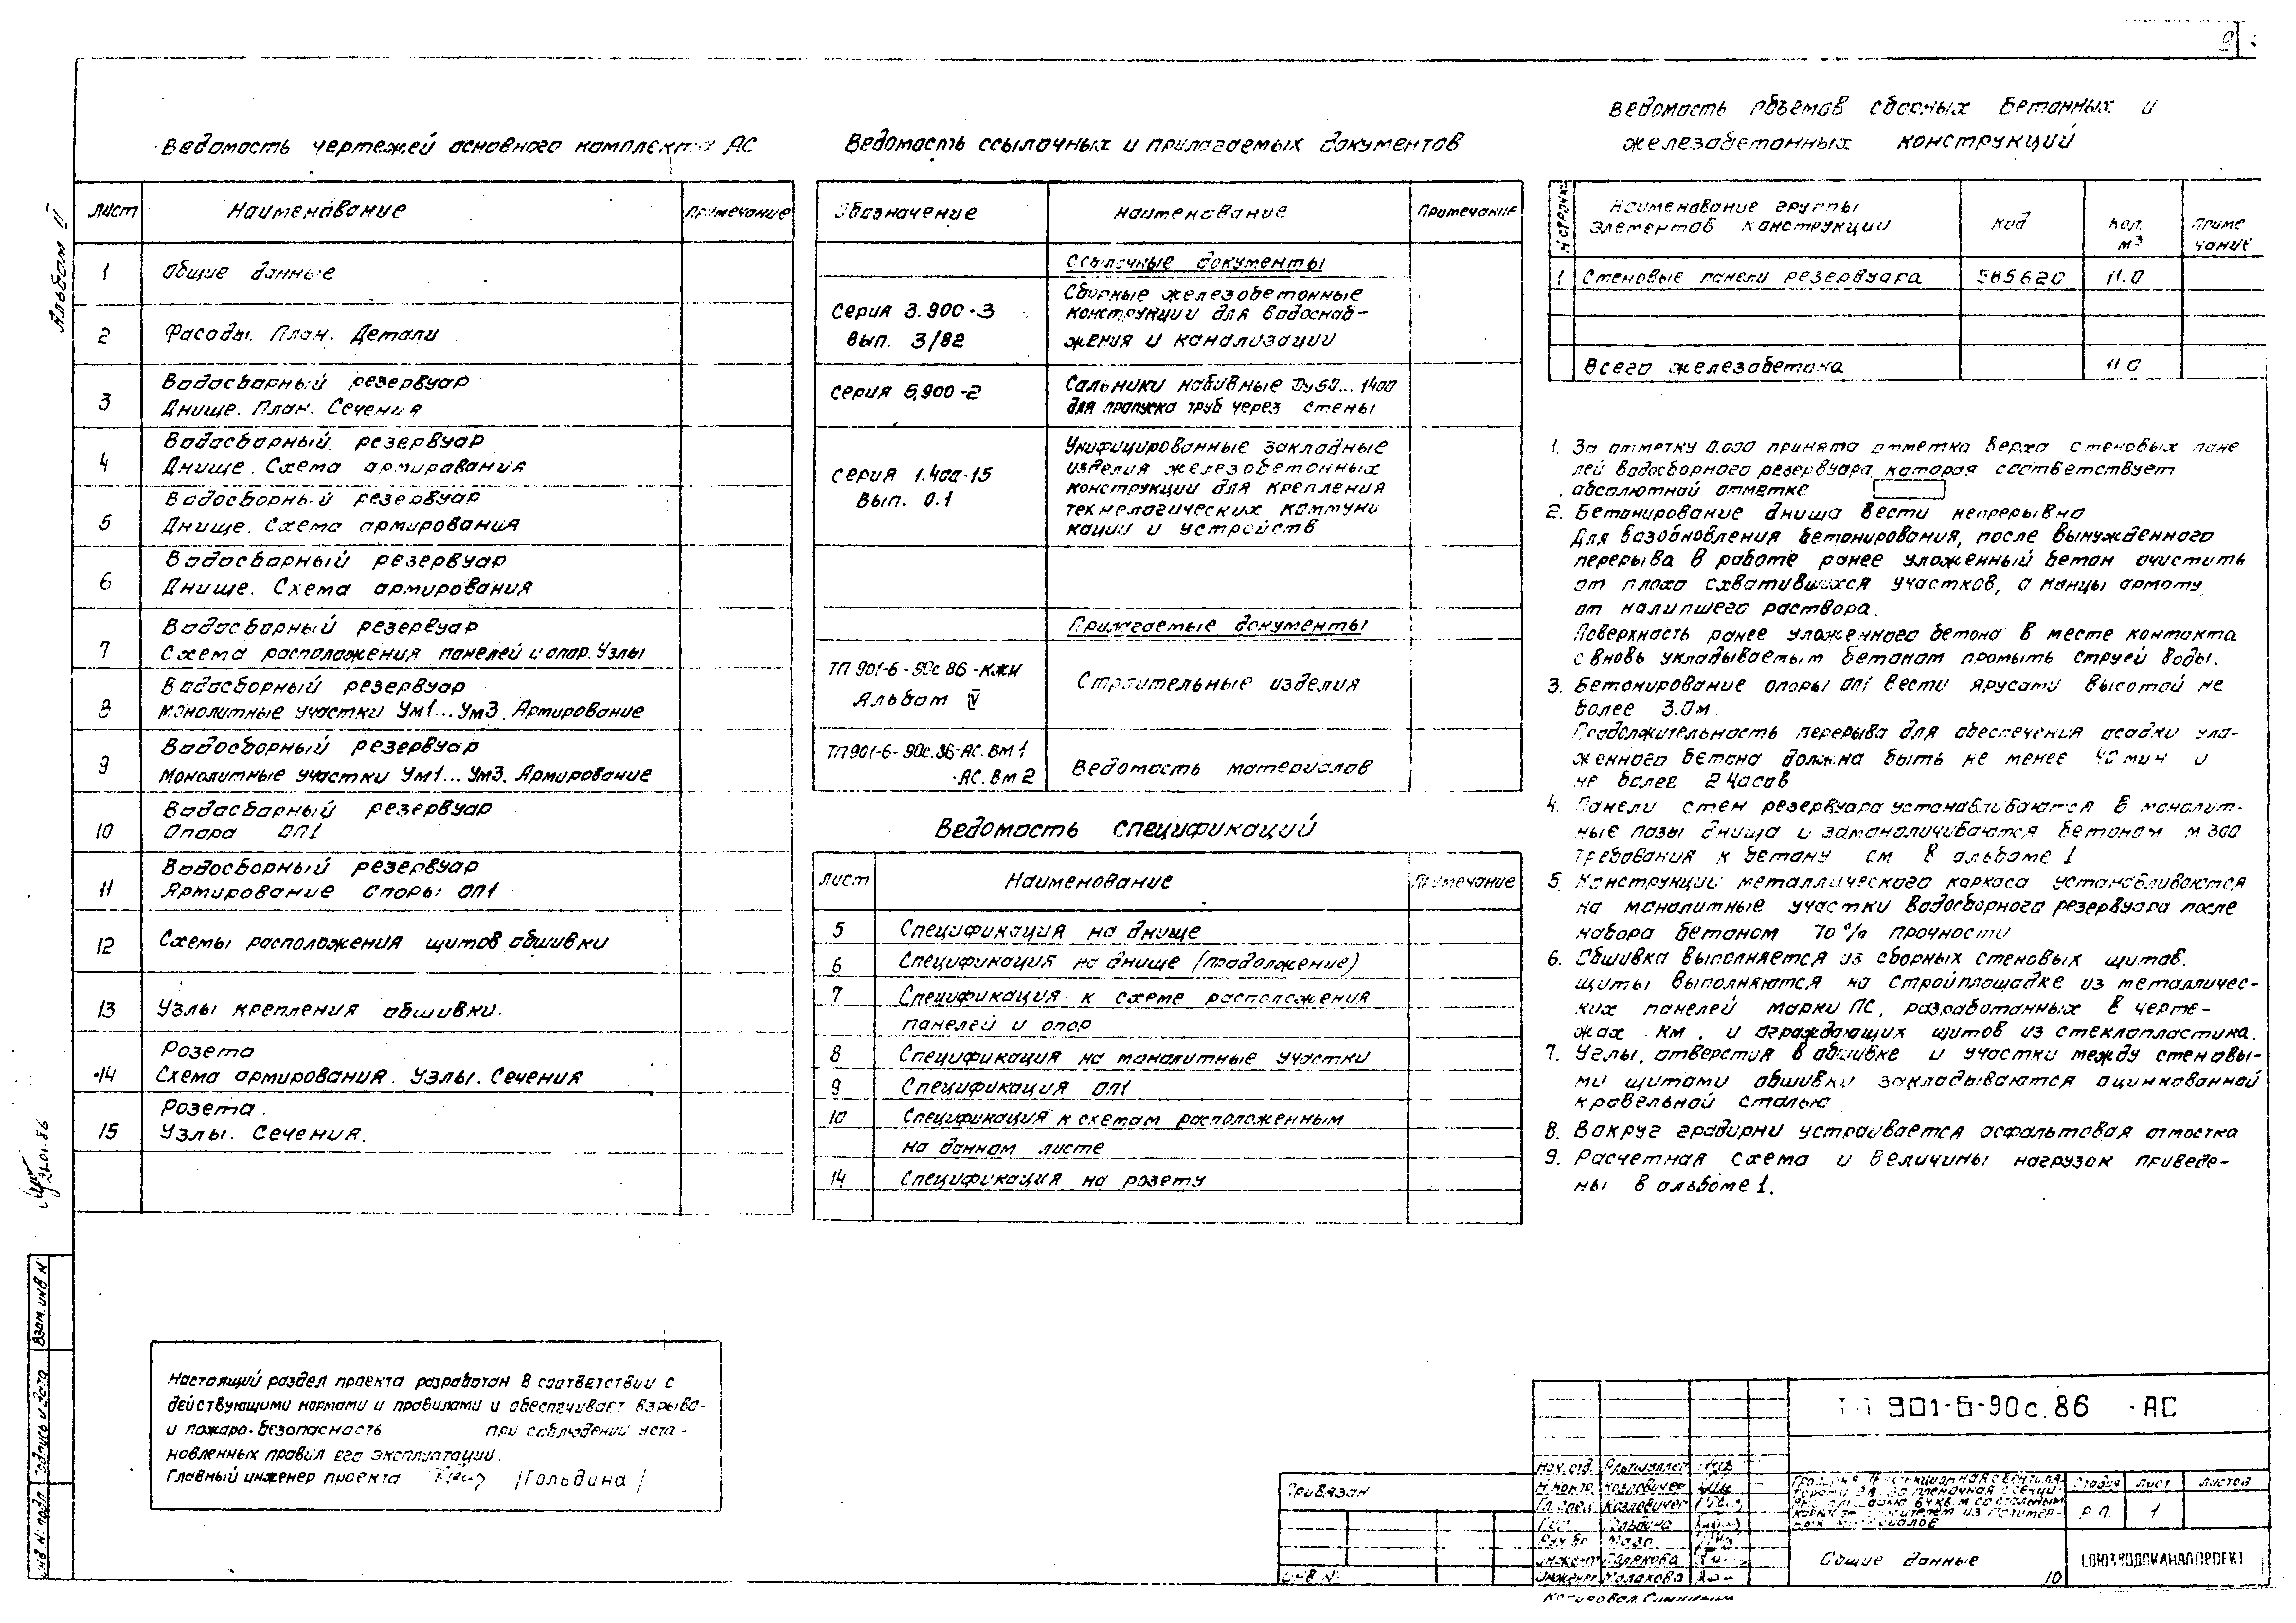 Альбом II
Ведомость чертежей основного комплекта АС
Лист Наименование Примечание
1 Общие данные
2 Фасады. План. Детали
3 Водосборный резервуар
Днище. План. Сечения
4 Водосборный резервуар
Днище. Схема армирования
5 Водосборный резервуар
Днище. Схема армирования
6 Водосборный резервуар
Днище. Схема армирования
7 Водосборный резервуар
Схема расположения панелей и опор. Узлы
8 Водосборный резервуар
Монолитные участки Ум1...Ум3. Армирование
9 Водосборный резервуар
Монолитные участки Ум1...Ум3. Армирование
10 Водосборный резервуар
Опора ОП1
11 Водосборный резервуар
Армирование опоры ОП1
12 Схемы расположения щитов обшивки
13 Узлы крепления обшивки.
14 Розета
Схема армирования. Узлы. Сечения
15 Розета.
Узлы. Сечения.
Ведомость ссылочных и прилагаемых документов
Обозначение Наименование Примечание
Ссылочные документы
Серия 3.900-3
Вып. 3/82
Сборные железобетонные
конструкции для водоснаб-
жения и канализации
Серия 5.900-2
Сальники набивные Ду50...1400
для пропуска труб через стены
Серия 1.400-15
Вып. 0.1
Унифицированные закладные
изделия железобетонных
конструкции для крепления
технологических коммуни
кации и устройств
Прилагаемые документы
ТП 901-6-90с.86-КЖИ
Альбом V
Строительные изделия
ТП901-6-90с.86-АС.ВМ1
-АС.ВМ2
Ведомость материалов
Ведомость спецификаций
Лист Наименование Примечание
5 Спецификация на днище
6 Спецификация на днище (продолжение)
7 Спецификация к схеме расположения
панелей и опор
8 Спецификация на монолитные участки
9 Спецификация ОП1
10 Спецификация к схемам расположенным
на данном листе
14 Спецификация на розету
Ведомость объемов сборных бетонных и
железобетонных конструкций
N строки Наименование группы
элементов конструкции Код Кол. м³ Приме
чание
1 Стеновые панели резервуара 585620 11.0
Всего железобетона 11 0
1. За отметку 0.000 принята отметка верха стеновых пане
лей водосборного резервуара, которая соответствует
абсолютной отметке
2. Бетонирование днища вести непрерывно.
Для возобновления бетонирования, после вынужденного
перерыва в работе ранее уложенный бетон очистить
от плохо схватившихся участков, а концы армату
от налипшего раствора.
Поверхность ранее уложенного бетона в месте контакта
с вновь укладываемым бетоном промыть струей воды.
3. Бетонирование опоры ОП1 вести ярусами высотой не
более 3.0м.
Продолжительность перерыва для обеспечения осадки уло-
женного бетона должна быть не менее 40 мин и
не более 2 часов
4. Панели стен резервуара устанавливаются в монолит-
ные пазы днища и замоноличиваются бетоном м 300
требования к бетону см в альбоме 1
5. Конструкции металлического каркаса устанавливаются
на монолитные участки водосборного резервуара после
набора бетоном 70% прочности
6. Обшивка выполняется из сборных стеновых щитов.
Щиты выполняются на стройплощадке из металличес-
ких панелей марки ПС, разработанных в черте-
жах КМ, и ограждающих щитов из стеклопластика.
7. Углы, отверстия в обшивке и участки между стеновы-
ми щитами обшивки закладываются оцинкованной
кровельной сталью
8. Вокруг градирни устраивается асфальтовая отмостка
9. Расчетная схема и величины нагрузок приведе-
ны в альбоме 1.
Настоящий раздел проекта разработан в соответствии с
действующими нормами и правилами и обеспечивает взрыво-
и пожаро-безопасность при соблюдении уста-
новленных правил его эксплуатации.
Главный инженер проекта /Гольдина/
Взам. инв. N
Подпись и дата
Инв. N подл.
21.01.86
Привязан
Инв N
ТП 901-6-90с.86 -АС
Нач. отд. Альтшуллер
Н. контр. Козловичер
Гл. спец. Козловичер
Гип Гольдина
Рук бр
Инженер
Инженер Малахова
Стадия Лист Листов
Р.П. 1
Общие данные
СОЮЗВОДОКАНАЛПРОЕКТ
10
Копировал